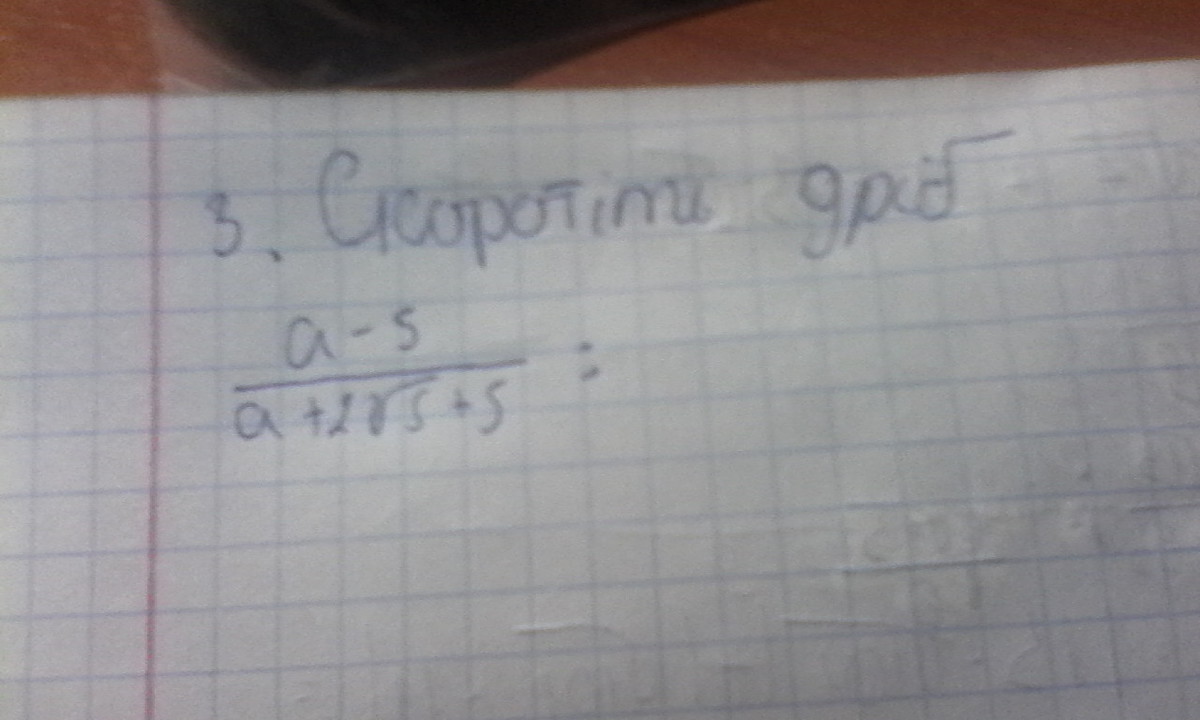 3. Скоротіти дріб
a-5
a+2√5+5 :